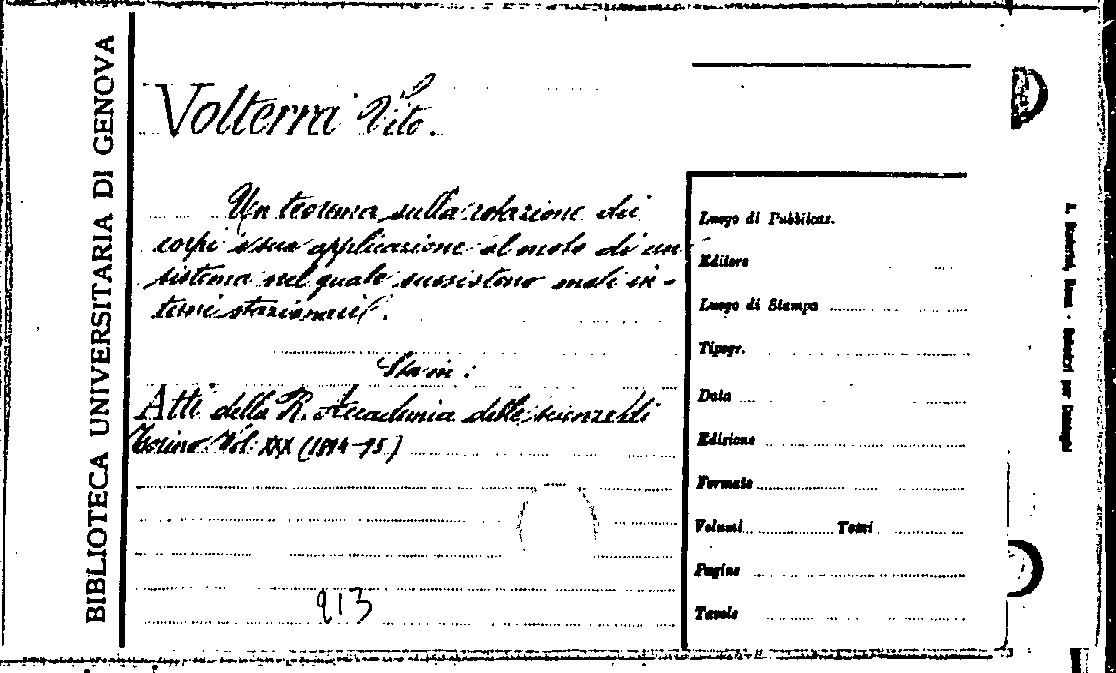 BIBLIOTECA UNIVERSITARIA DI GENOVA
Volterra Vito.
Un teorema sulla rotazione dei
corpi e sua applicazione al moto di un
sistema nel quale sussistono moti in-
terni stazionarii.
Sta in:
Atti della R. Accademia delle scienze di
Torino. Vol. XXX (1894-95)
913
Luogo di Pubblicaz.
Editore
Luogo di Stampa
Tipogr.
Data
Edizione
Formato
Volumi Tomi
Pagine
Tavole
Roma - Schedari per Cataloghi